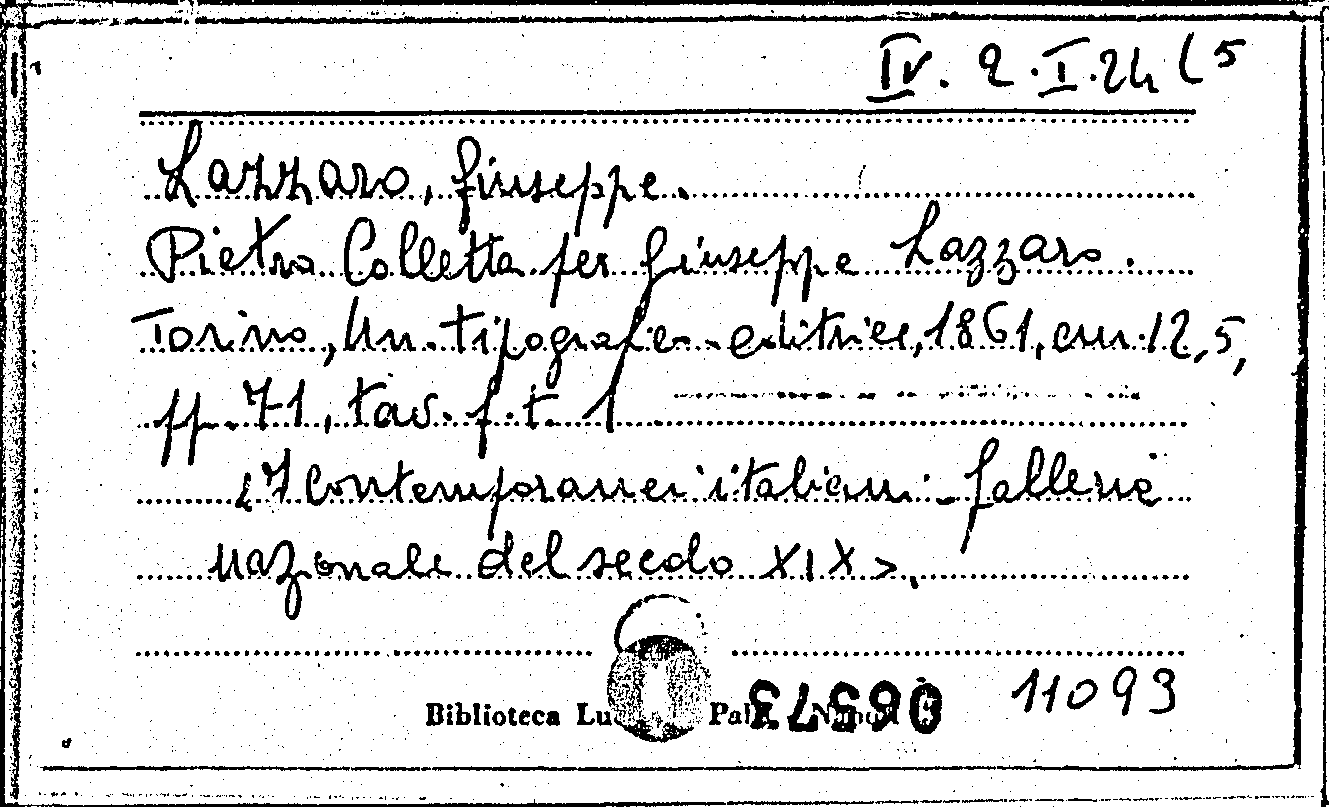 IV. 2. I. 24 (5
Lazzaro, Giuseppe.
Pietro Colletta per Giuseppe Lazzaro.
Torino, Un. tipografico-editrice, 1861, cm. 12,5,
pp. 71, tav. f. t. 1
<I contemporanei italiani - Galleria
nazionale del secolo XIX>.
Biblioteca Napoli
11093